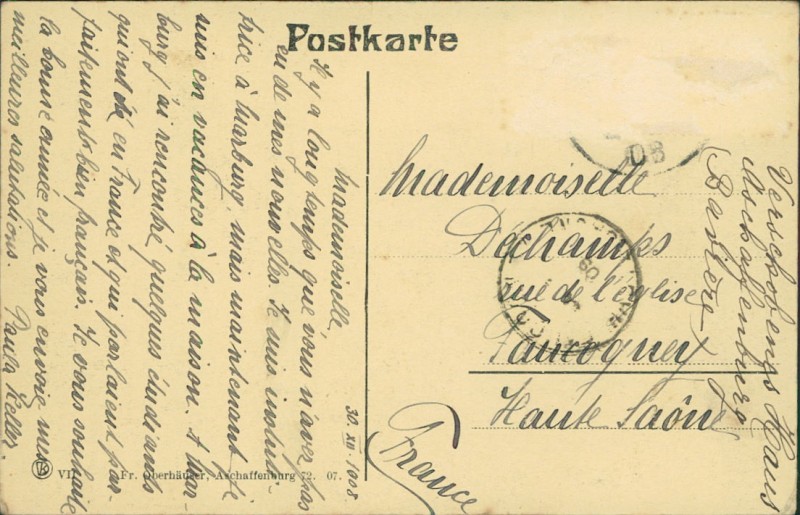 Postkarte
30. XII. 1908
Mademoiselle,
Il y a longtemps que vous n'avez pas
eu de mes nouvelles. Je suis institu-
trice à Marburg, mais maintenant je
suis en vacances à la maison. A Mar-
burg j'ai rencontré quelques étudiants
qui ont été en France et qui parlaient par-
faitement bien français. Je vous souhaite
la bonne année et je vous envoie mes
meilleures salutations. Paula Keller.
Mademoiselle
Dechamps
rue de l'église
Faucogney
Haute Saône
France
08
09
Haus
Aschaffenburg
(Bavière)
VII Fr. Oberhäuser, Aschaffenburg 72. 07.